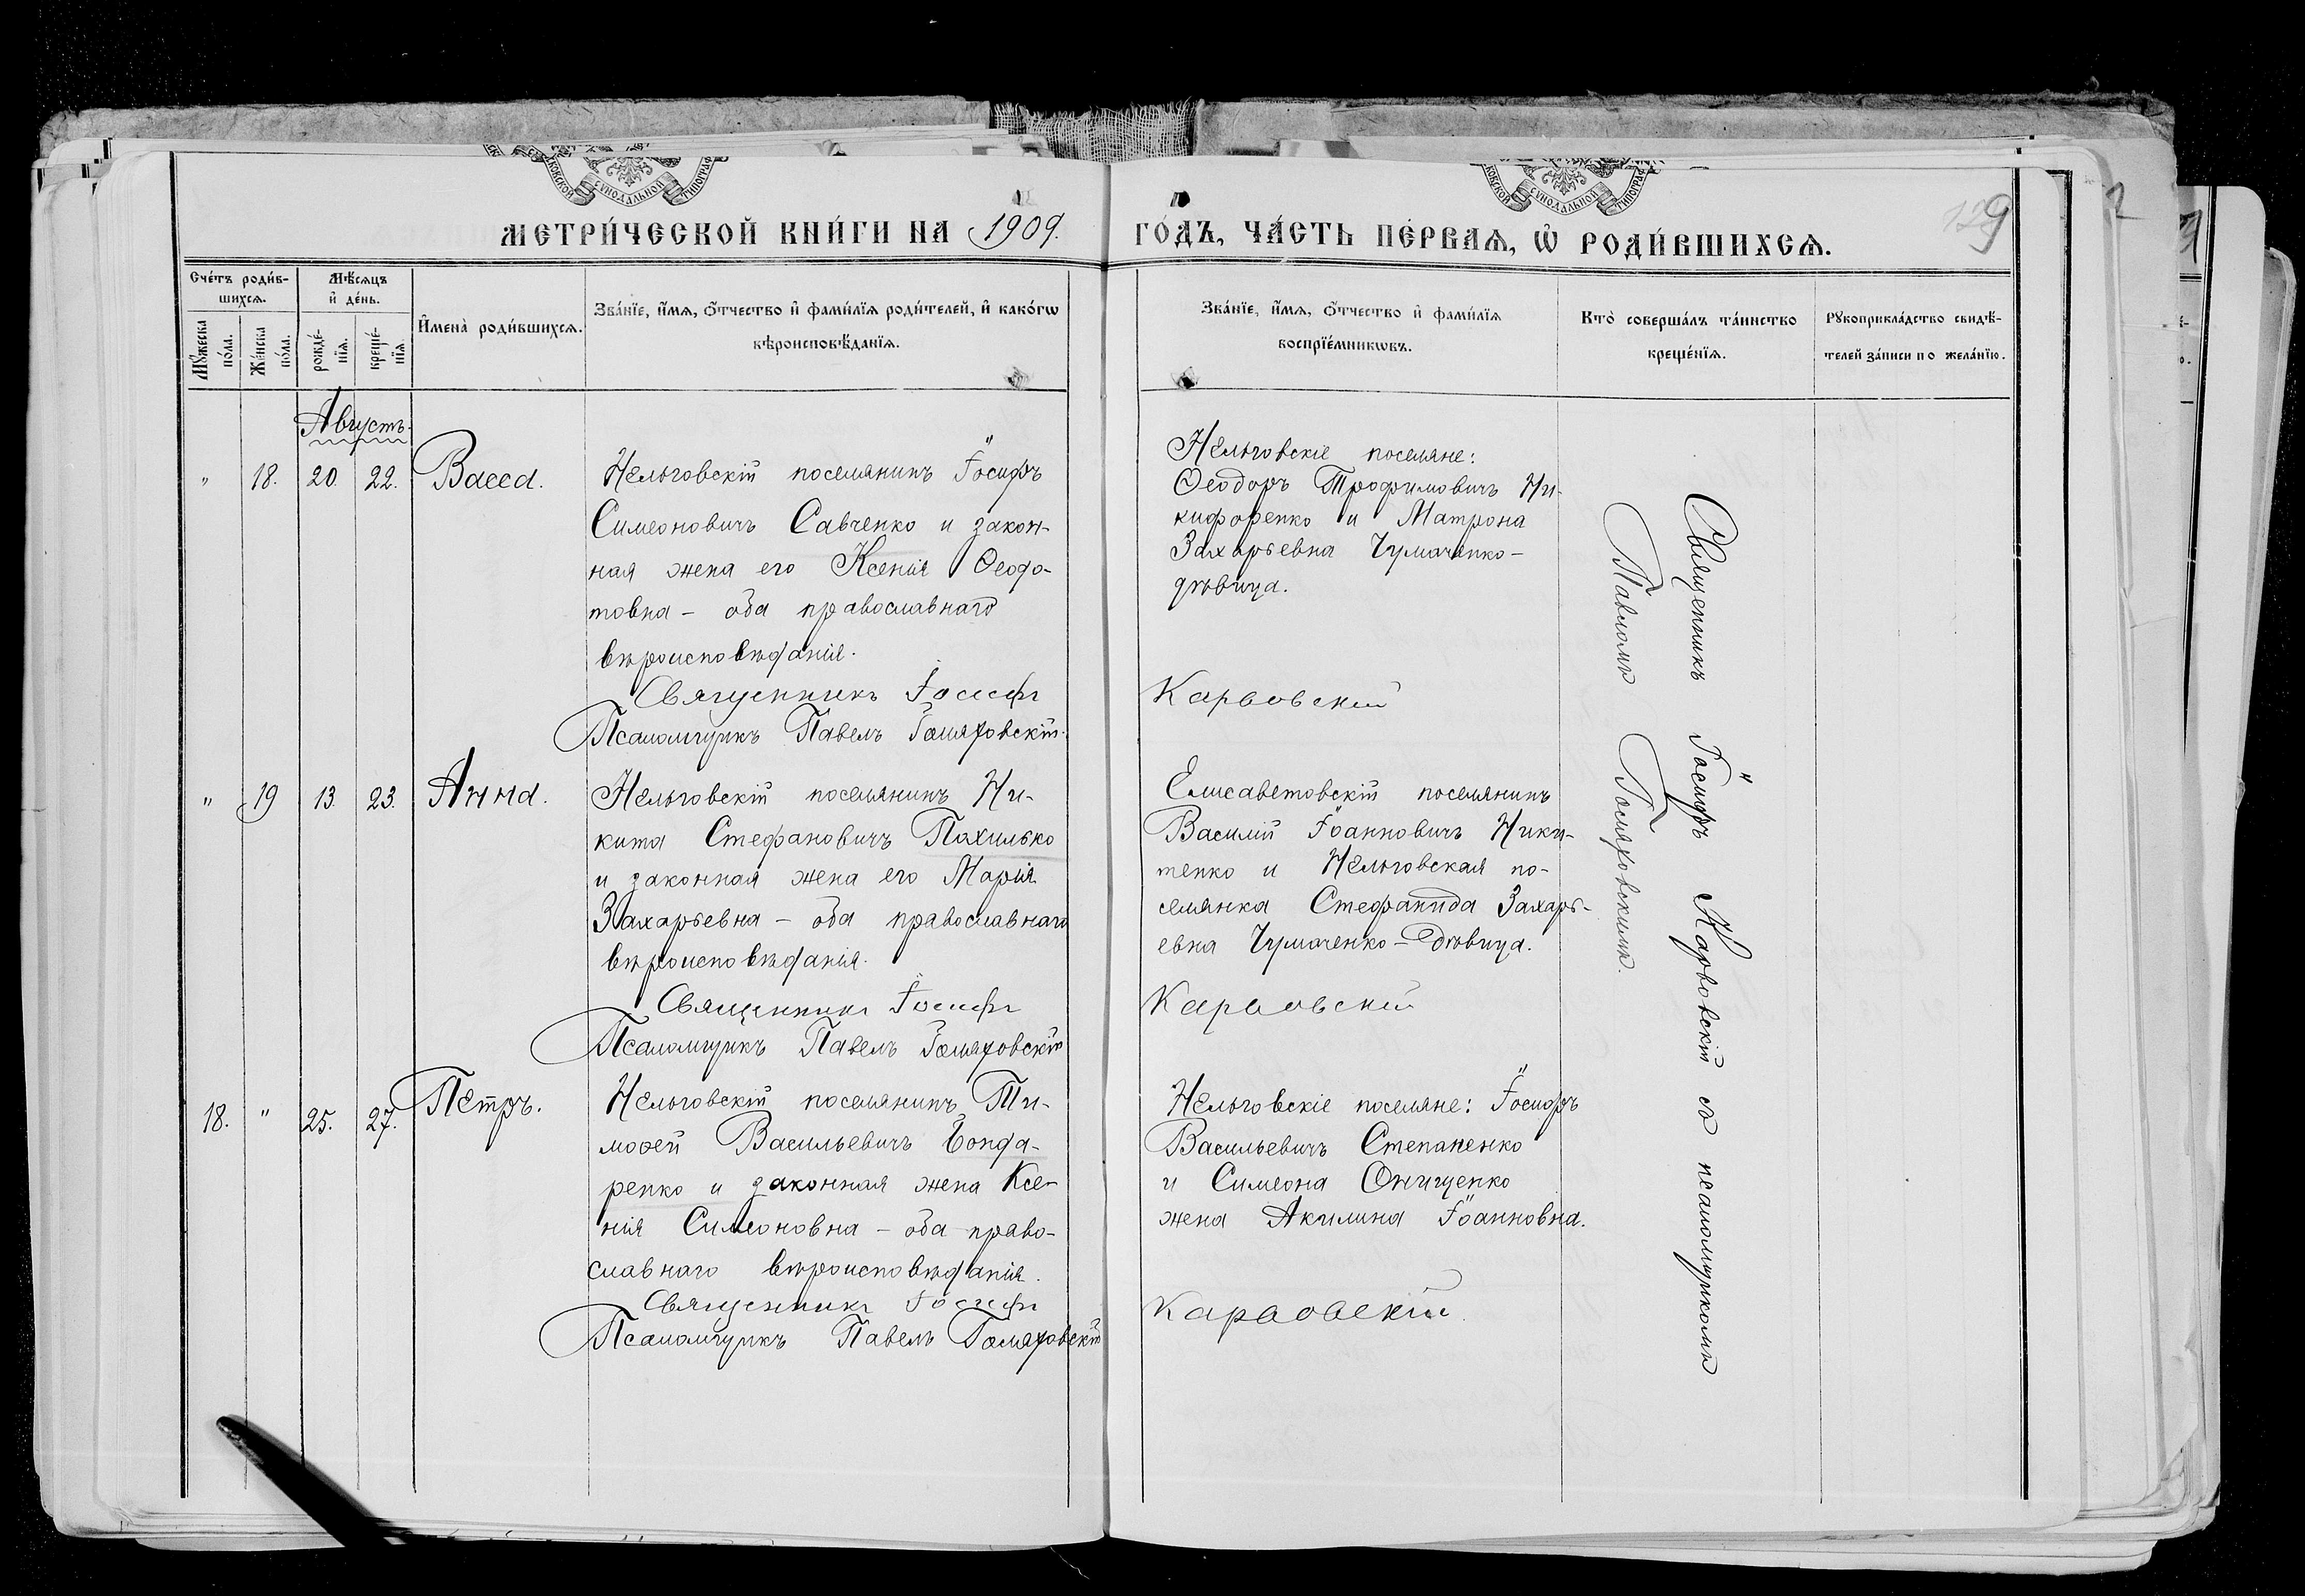 МЕТРИ́ЧЕСКОЙ КНИ́ГИ НА 1909.
ГО́ДЪ, ЧА́СТЬ ПЕ́РВАѦ, Ѡ҆ РОДИ́ВШИХСѦ.
Сче́тъ роди́в-
шихсѧ.
Мѣ́сѧцъ
и҆ де́нь.
Мꙋ́жеска
по́ла.
Же́нска
по́ла.
рожде́-
нїѧ.
креще́-
нїѧ.
И҆мена̀ роди́вшихсѧ.
Зва́нїе, и҆́мѧ, ѻ҆́тчество и҆ фами́лїѧ роди́телей, и҆ како́гѡ
вѣроисповѣ́данїѧ.
Зва́нїе, и҆́мѧ, ѻ҆́тчество и҆ фами́лїѧ
воспрїе́мникѡвъ.
Кто̀ соверша́лъ та́инство
креще́нїѧ.
Рꙋкоприкла́дство свидѣ́-
телей за́писи по жела́нїю.
Августъ.
" 18. 20. 22. Васса.
Нельговскій поселянинъ Іосифъ
Симеоновичъ Савченко и закон-
ная жена его Ксенія Ѳеодо-
товна – оба православнаго
вѣроисповѣданія.
Священникъ Іосифъ
Псаломщикъ Павелъ
Нельговскіе поселяне:
Ѳеодоръ Трофимовичъ Ни-
кифоренко и Матрона
Захарьевна Чумаченко –
дѣвица.
Карвовскій
" 19 13. 23. Анна.
Нельговскій поселянинъ Ни-
кита Стефановичъ Похилько
и законная жена его Марія
Захарьевна – оба православнаго
вѣроисповѣданія.
Священникъ Іосифъ
Псаломщикъ Павелъ
Елисаветовскій поселянинъ
Василій Іоанновичъ Ники-
тенко и Нельговская по-
селянка Стефанида Захарь-
евна Чумаченко – дѣвица.
Карвовскій
18. " 25. 27. Петръ.
Нельговскій поселянинъ Ти-
моѳей Васильевичъ Бонда-
ренко и законная жена Ксе-
нія Симеоновна – оба право-
славнаго вѣроисповѣданія.
Священникъ Іосифъ
Псаломщикъ Павелъ
Нельговскіе поселяне: Іосифъ
Васильевичъ Степаненко
и Симеона Онищенко
жена Акилина Іоанновна.
Карвовскій.
Священникъ Іосифъ Карвовскій съ псаломщикомъ
Павломъ